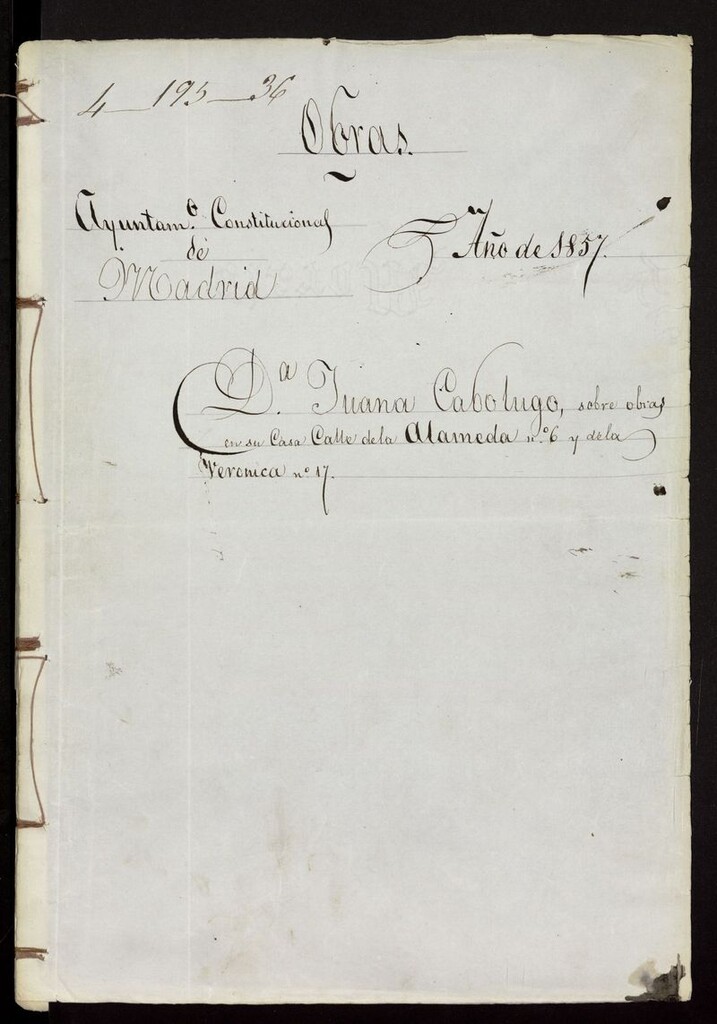 4—195—36
Obras.
Ayuntam.º Constitucional
de
Madrid
Año de 1857.
D.ª Juana Cabolugo, sobre obras
en su Casa Calle de la Alameda n.º 6 y de la
Veronica nº 17.